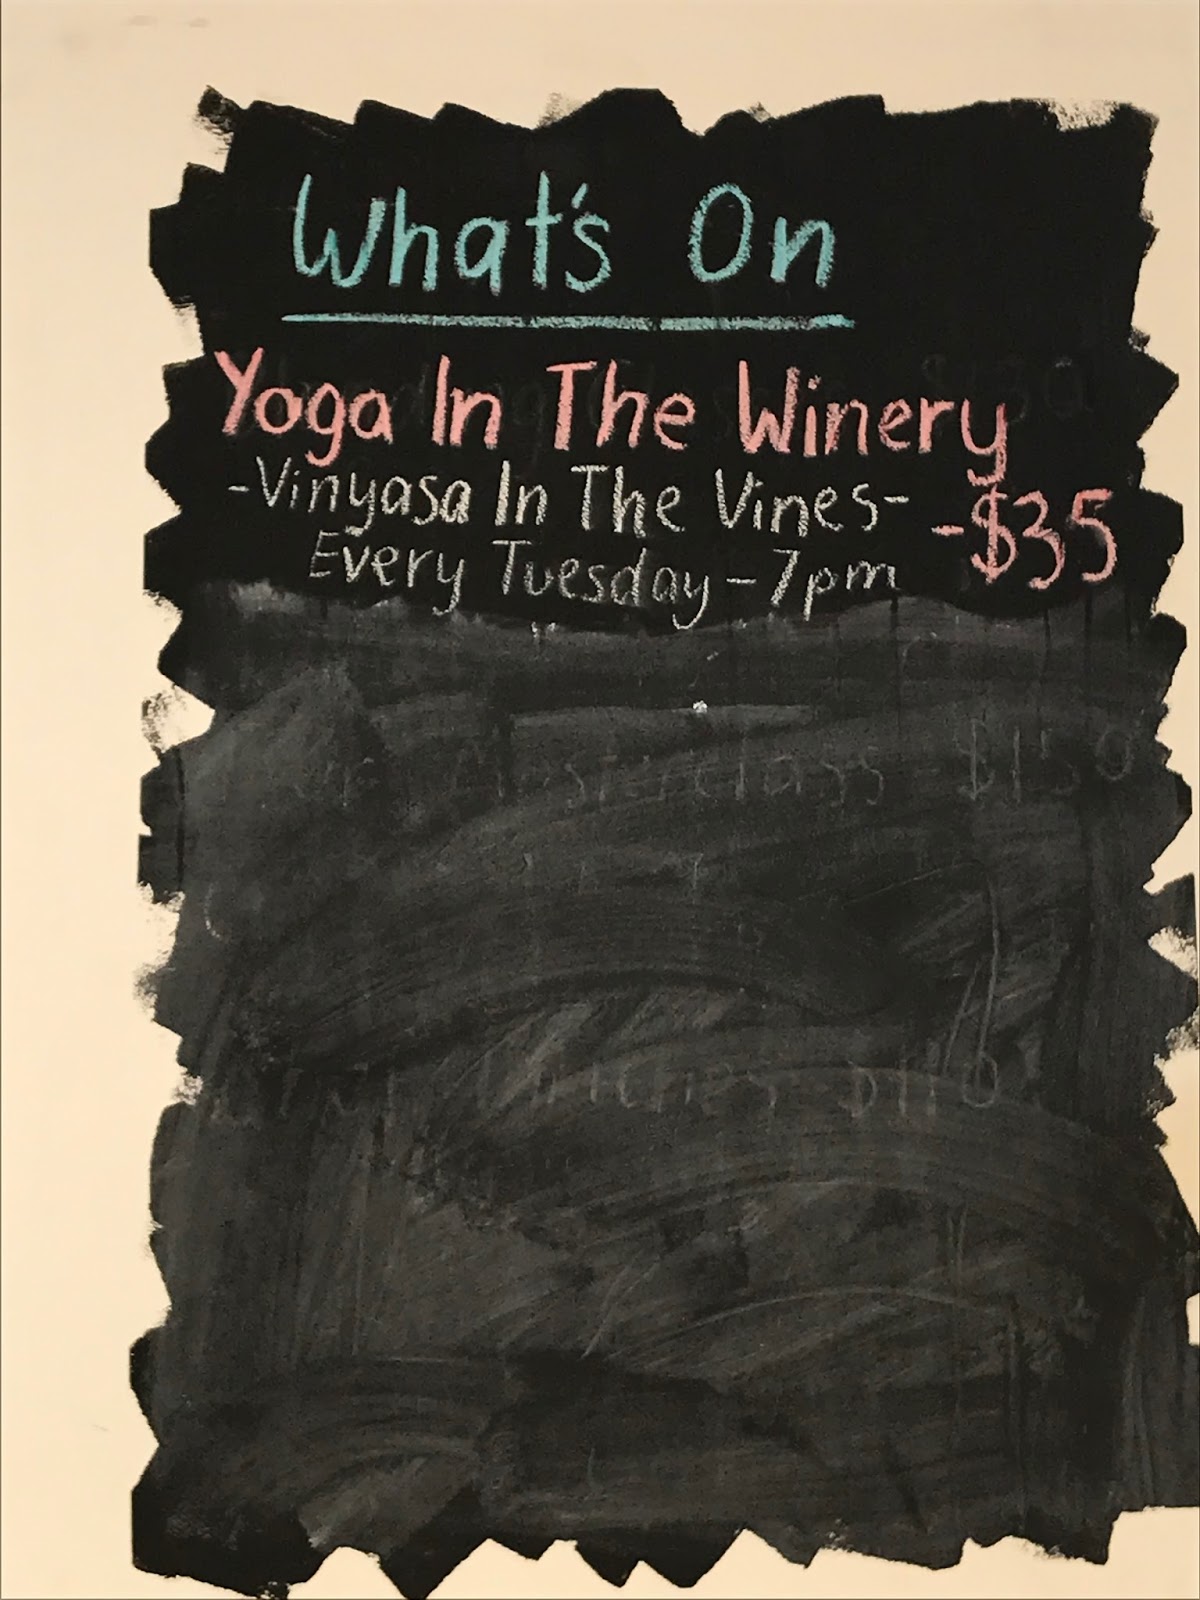 What's On
Yoga In The Winery
-Vinyasa In The Vines- -$35
Every Tuesday - 7pm
Masterclass $150